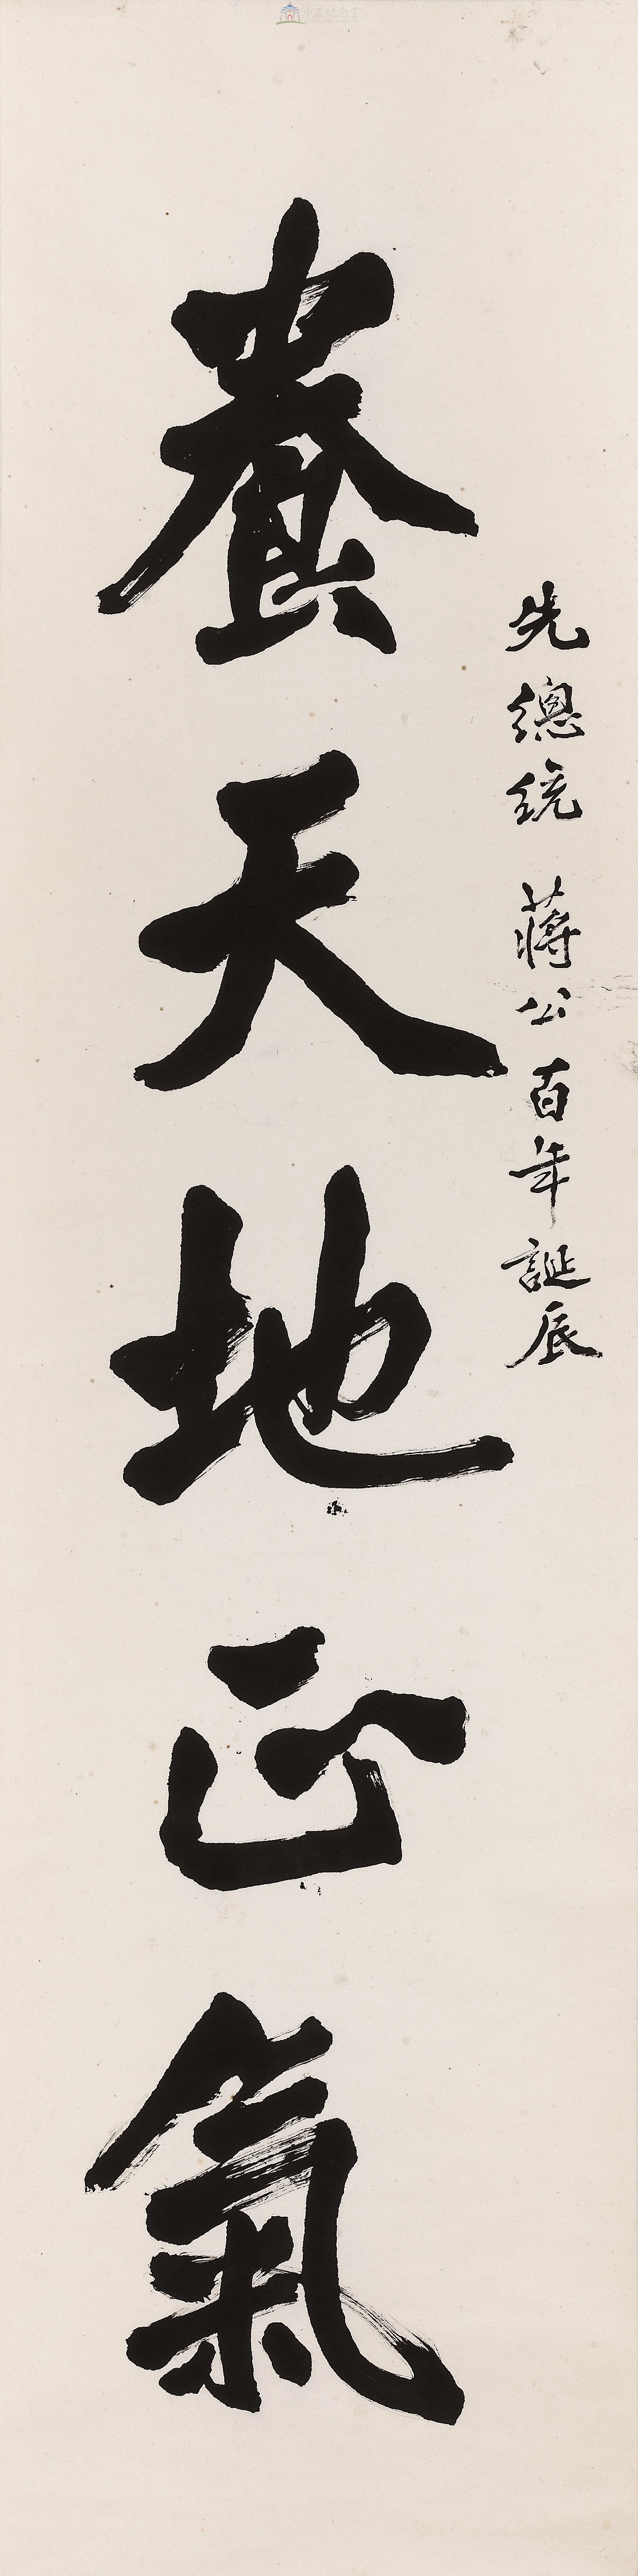 先總統 蔣公百年誕辰
養天地正氣